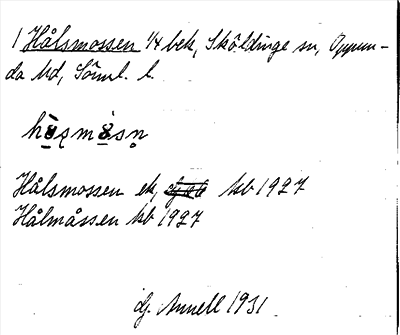 1 Hålsmossen 1/4 bek, Sköldinge sn, Oppun-
da hd, Söml. l.
Hålsmossen ek, kb 1927
Hålmåssen kb 1927
dj. Annell 1931